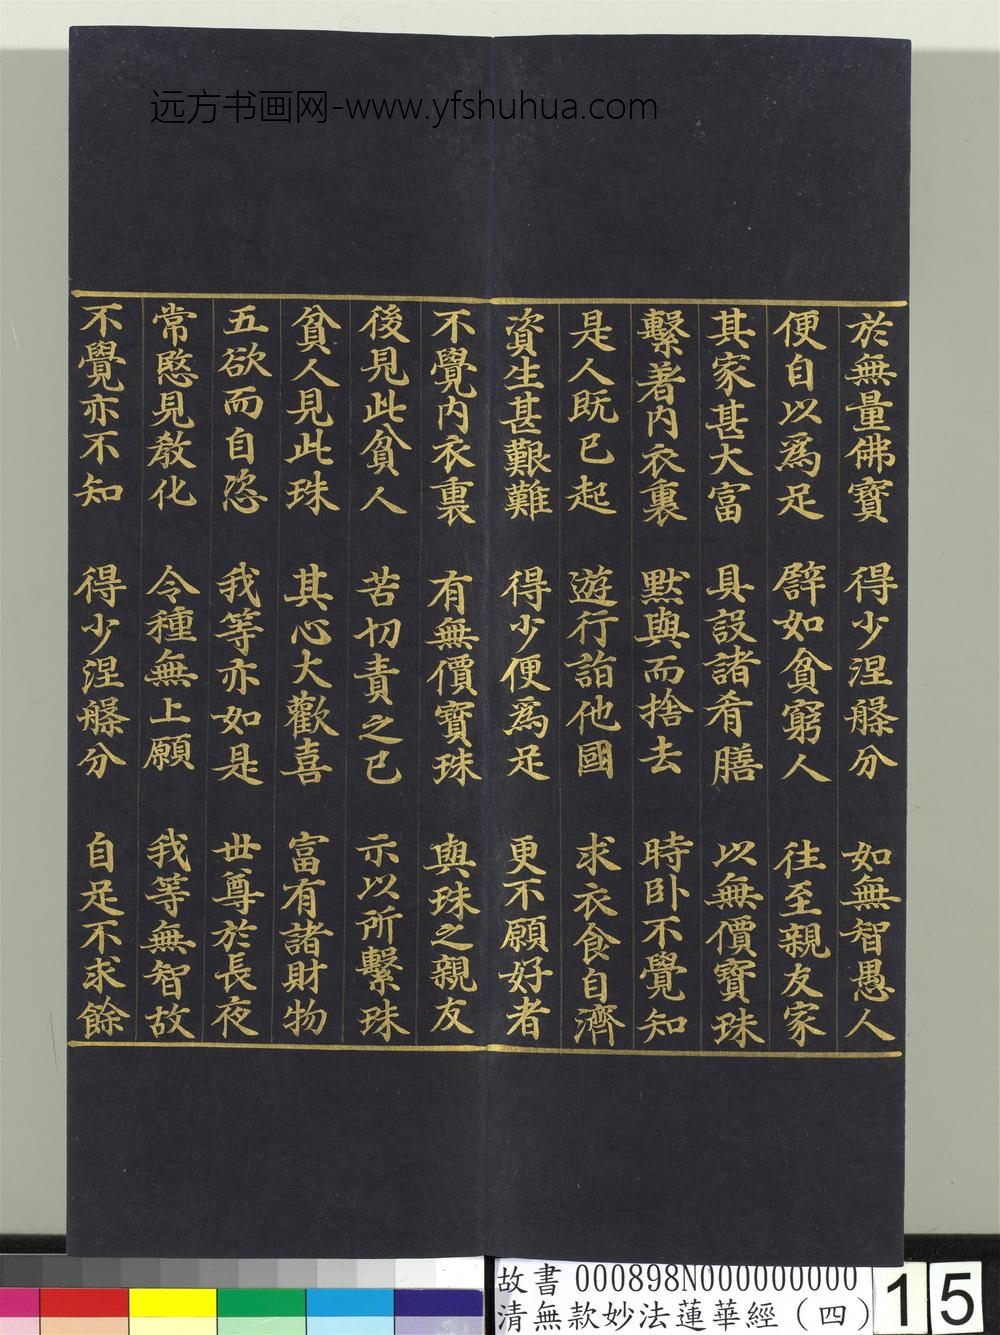 远方书画网-www.yfshuhua.com
於無量佛寶 得少涅槃分 如無智愚人
便自以為足 譬如貧窮人 往至親友家
其家甚大富 具設諸肴膳 以無價寶珠
繫著內衣裏 默與而捨去 時臥不覺知
是人既已起 遊行詣他國 求衣食自濟
資生甚艱難 得少便為足 更不願好者
不覺內衣裏 有無價寶珠 與珠之親友
後見此貧人 苦切責之已 示以所繫珠
貧人見此珠 其心大歡喜 富有諸財物
五欲而自恣 我等亦如是 世尊於長夜
常愍見教化 令種無上願 我等無智故
不覺亦不知 得少涅槃分 自足不求餘
故書 000898N000000000
清無款妙法蓮華經(四)
15